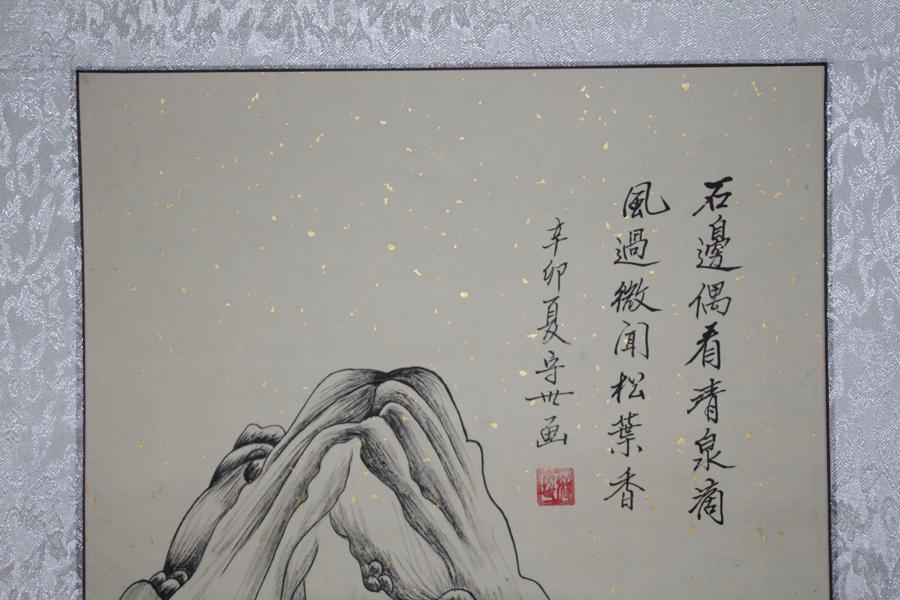 石邊偶看清泉滴
風過微聞松葉香
辛卯夏守世画